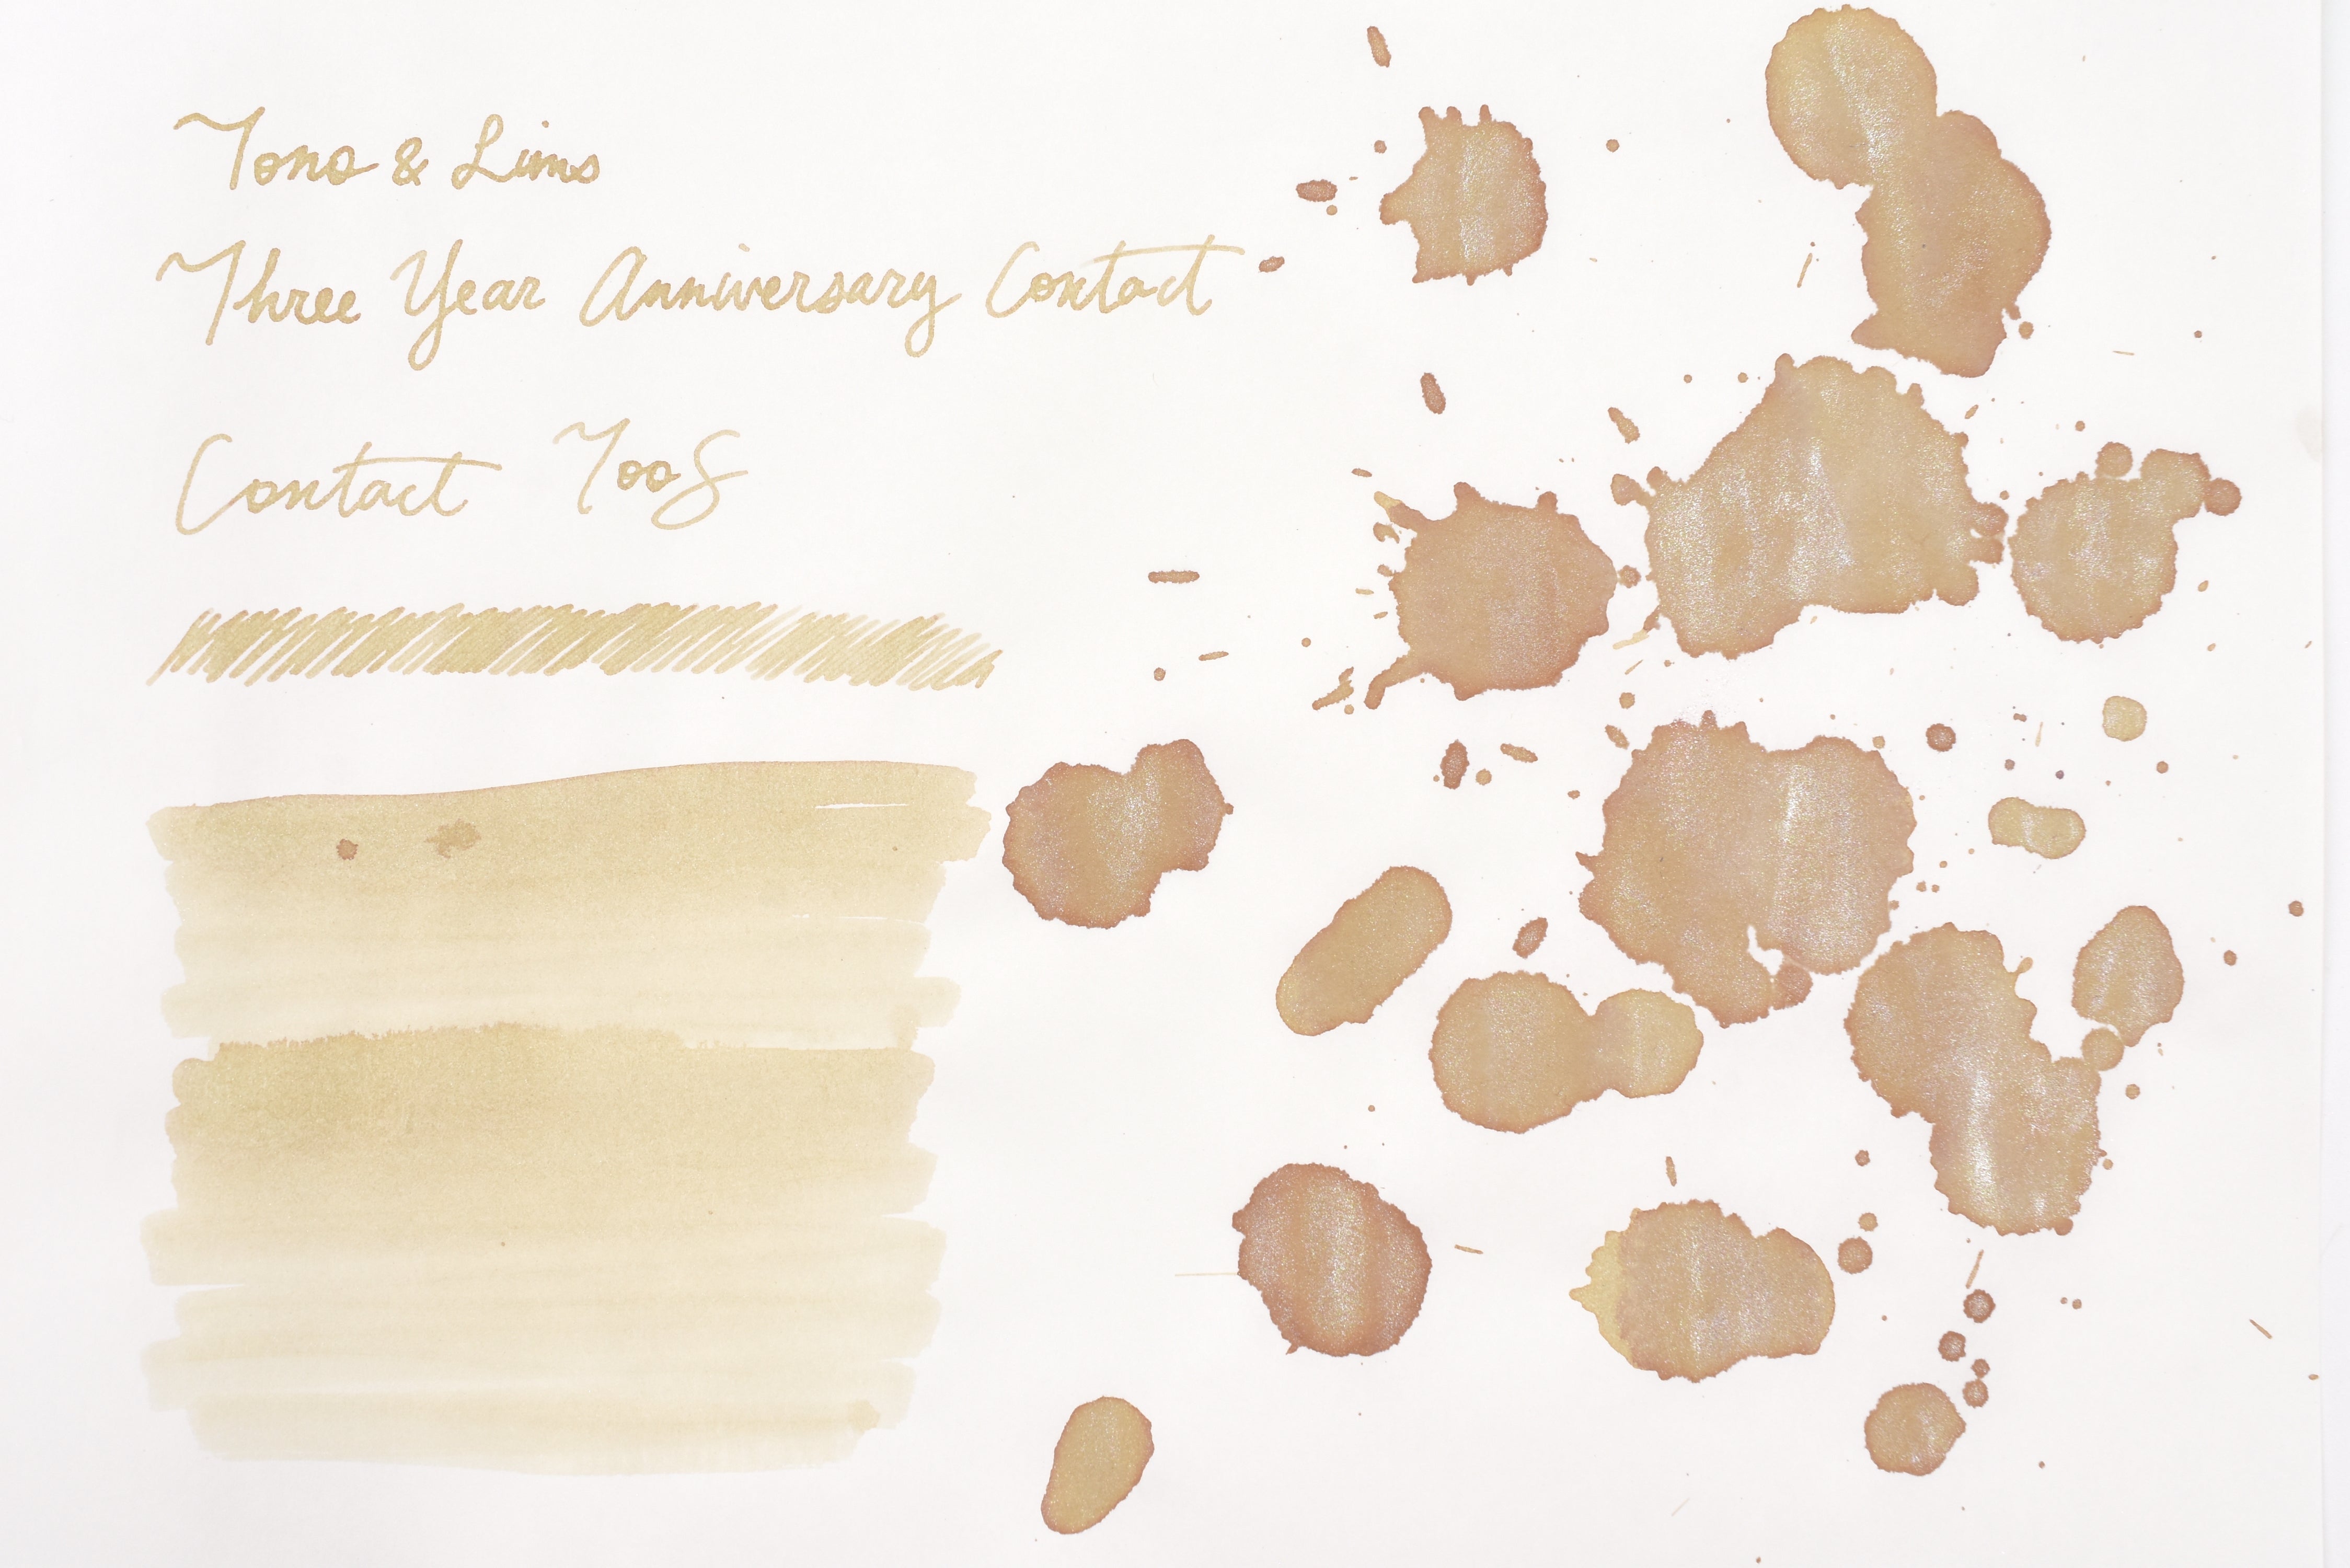 Tono & Lims
Three Year Anniversary Contact
Contact TooS